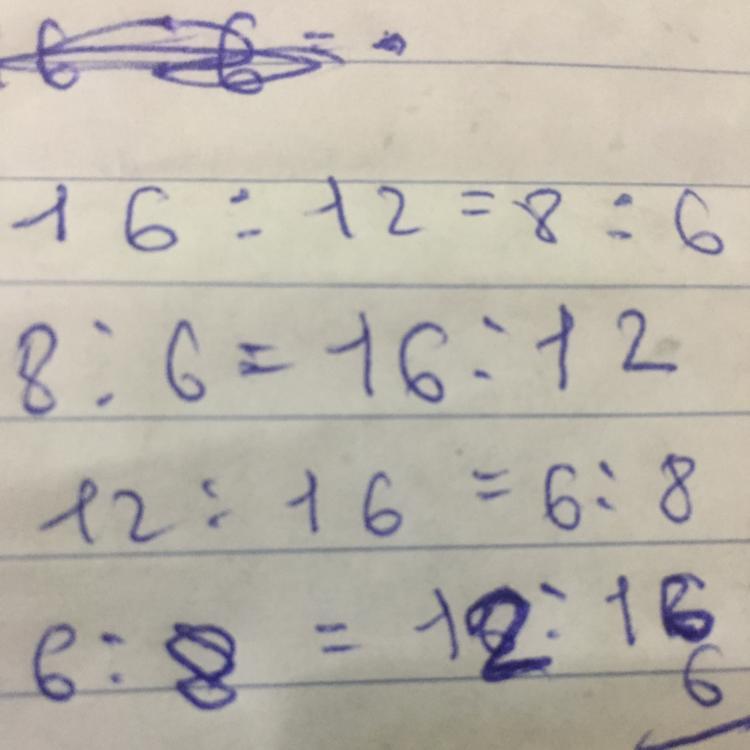 16 : 12 = 8 : 6
8 : 6 = 16 : 12
12 : 16 = 6 : 8
6 : 8 = 12 : 16
6